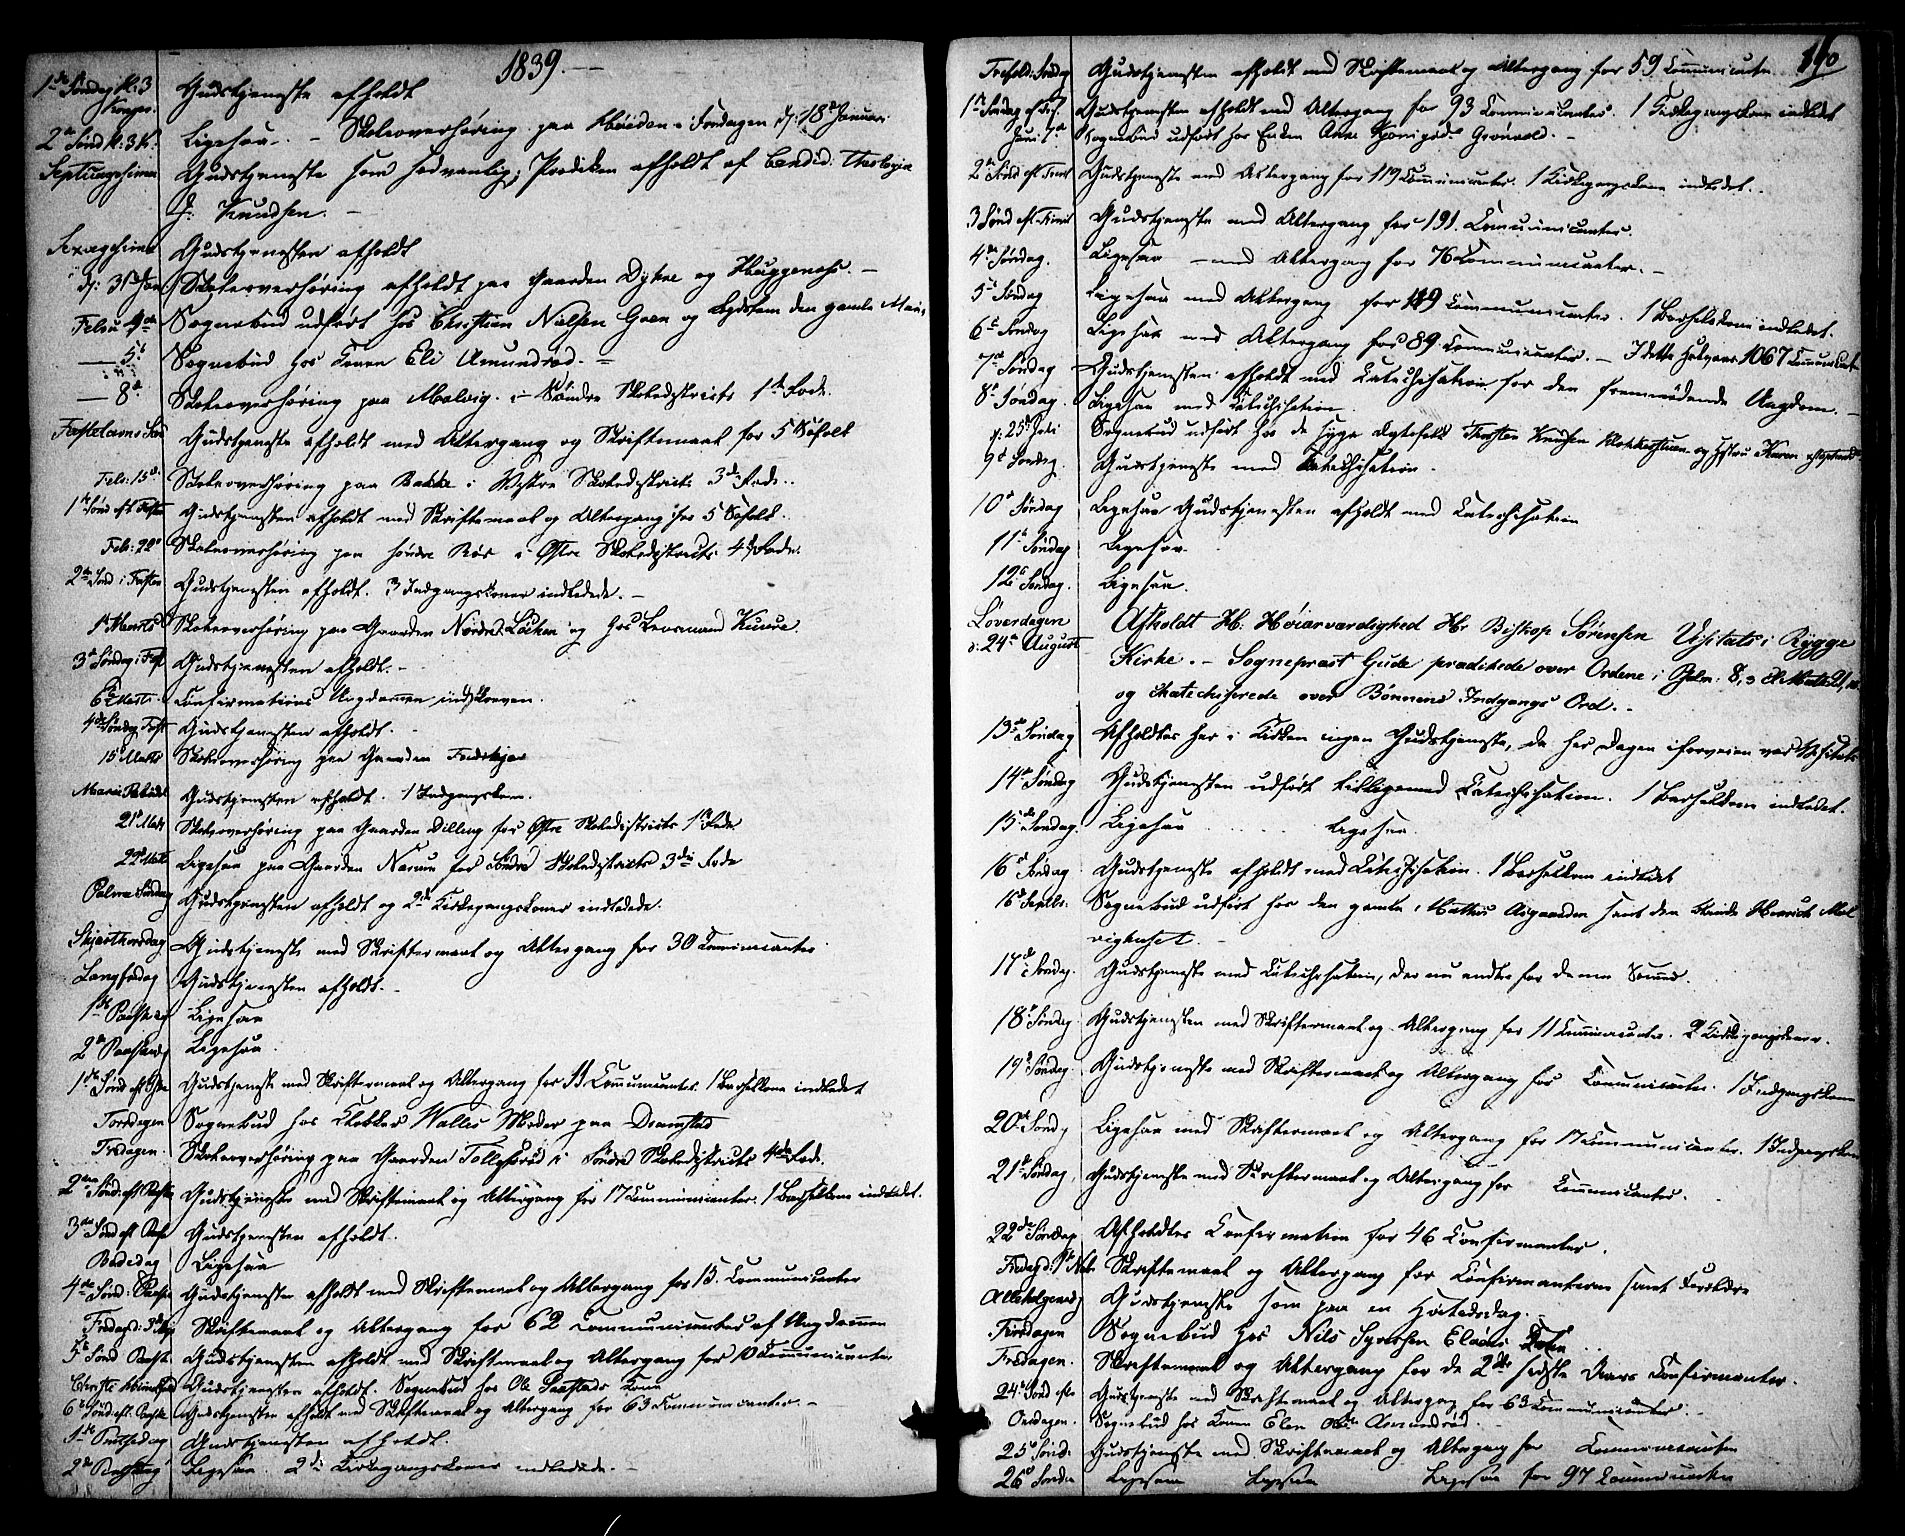 1839.
1ste Søndag H: 3 Konger. Gudstjeneste afholdt
2den Sønd H: 3 K. Ligesaa. - Skoleoverhøring paa Fredagen d: 18de Januari
Septuagesima Gudstjeneste som sædvanlig; Prædiken afholdt af Candid: Theologia
J: Knudsen. -
Sexagesima Gudstjenesten afholdt
d: 31te Jan Skoleoverhøring afholdt paa Gaarden Dyhre og Huggenæs. -
Febru 4de Sognebud udført hos Christian Nielsen Goen og den gamle
— 5te Sognebud hos Konen Eli Amundrød. -
— 8de Skoleoverhøring paa Malvig i Søndre Skoledistricts 1ste Rode.
Fastelavns Sønd Gudstjeneste afholdt med Altergang og Skriftemaal for 5 Søfolk
Feb: 15de Skoleoverhøring paa Bakke i Vestre Skoledistricts 3die Rode..
1ste Sønd i Fasten Gudstjenesten afholdt med Skriftemaal og Altergang for 5 Søfolk.
Feb: 22de Skoleoverhøring paa søndre Rør i Østre Skoledistricts 4de Rode.
2den Sønd i Fasten Gudstjenesten afholdt. 3 Indgangskoner indledede. -
1ste Marts Skoleoverhøring paa Gaarden Nordre Löken og hos Lensmand Kuure.
3die Søndag i Fast Gudstjenesten afholdt. -
6te Marts Confirmations Ungdommen indskreven.
4de Søndag i Fast Gudstjenesten afholdt. -
15 Marts Skoleoverhøring paa Gaarden
Mariæ Gudstjenesten afholdt. 1 Indgangskone.
21de Marts Skoleoverhøring paa Gaarden Dilling for Østre Skoledistricts 1ste Rode
22de Marts Ligesaa paa Gaarden Narum for Søndre Skoledistricts 3die Rode
Palme Søndag Gudstjenesten afholdt og 2de Kirkegangskoner indledede.
Skjærthorsdag Gudstjeneste med Skriftemaal og Altergang for 30 Communicanter
Langfredag Gudstjenesten afholdt. -
1ste Paaskedag Ligesaa
2den Paaskedag Ligesaa.
1ste Sønd eft Paaske Gudstjeneste med Skriftemaal og Altergang for Communicanter 1 Barselkone indledet
Torsdagen Sognebud hos Klokker Walles Moder paa Dramstad
Fredagen. Skoleoverhøring paa Gaarden Tollefsrød i Søndre Skoledistricts 4de Rode.
2den Sønd: eft Paaske Gudstjeneste med Skriftemaal og Altergang for 17 Communicanter. 1 Barselkone indledet.
3die Sønd eft Paaske Gudstjenesten afholdt.
Bededag Ligesaa
4de Sønd: Paaske Gudstjenesten afholdt med Skriftemaal og Altergang for 15. Communicanter
Fredag d: 3die Maj Skriftemaal og Altergang for 62 Communicanter af Ungdommen
5te Sønd Paaske Gudstjenesten afholdt med Skriftemaal og Altergang for 10 Communicanter
Christi Himmelfart Gudstjenesten afholdt. Sognebud hos Ole Saastads Kone
6te Sønd eft. Paaske Gudstjenesten afholdt med Skriftemaal og Altergang for 63 Communicanter. -
1ste Pintsedag Gudstjenesten afholdt.
2den Pintsedag Ligesaa. 2de Kirkegangskoner indledede. -
160
Trefold: Søndag Gudstjenesten afholdt med Skriftemaal og Altergang for 59 Communicanter.
1ste Søndag ef Tref. Gudstjenesten afholdt med Altergang for 93 Communicanter. 1 Kirkegangskone indledet
Juni 7de Sognebud udført hos Enken Anne Grønvold. -
2den Sønd eft Trinit Gudstjeneste med Altergang for 119 Communicanter. 1 Kirkegangskone indledet..
3 Sønd eft Trinit Gudstjeneste med Altergang for 191. Communicanter.
4de Søndag. Ligesaa - med Altergang for 76 Communicanter. -
5te Søndag Ligesaa med Altergang for 189 Communicanter. 1 Barselkone indledet.
6te Søndag Ligesaa med Altergang for 89 Communicanter. - I dette Halvaar 1067 Communicanter
7de Søndag Gudstjenesten afholdt med Catechisation for den fremmødende Ungdom. -
8de Søndag. Ligesaa med Catechisation.
d: 25de Juli Sognebud udført hos de syge Ægtefolk Thorsten Knudsen Klokkerstuen og Hustru Karen
9de Søndag. Gudstjeneste med Catechisation.
10de Søndag Ligesaa Gudstjenesten afholdt med Catechisation
11te Søndag Ligesaa.
12te Søndag. Ligesaa.
Løverdagen Afholdt H: Høiærværdighed Hr Biskop Sørensen Visitats i Rygge
d: 24de August Kirke. - Sognepræst Gude prædikede over Ordene i Psalm: 8,3
og Katechiserede over Bønnens Indgangs Ord. -
13de Søndag Afholdtes her i Kirken ingen Gudstjeneste, da her Dagen iforveien var Visitats.
14de Søndag Gudstjenesten udført tilligemed Catechisation. 1 Barselkone indledet.
15de Søndag. Ligesaa . . . . . Ligesaa.
16de Søndag Gudstjeneste afholdt med Catechisation. 1 Barselkone indledet
16 Septbr: Sognebud udført hos den gamle Mathis Aasgaarden samt den blinde Henrich Mal
vighuset. -
17de Søndag. Gudstjeneste med Catechisation, der nu endte for denne Sommer.
18de Søndag Gudstjenesten med Skriftemaal og Altergang for 11 Communicanter. 2 Kirkegangskoner.
19de Søndag Gudstjeneste med Skriftemaal og Altergang for Communicanter. 1 Indgangskone
20de Sønd Ligesaa med Skriftemaal og Altergang for 17 Communicanter. 1 Indgangskone
21de Søndag, Gudstjeneste med Skriftemaal og Altergang for Communicanter.
22de Søndag Afholdtes Confirmation for 46 Confirmanter.
Fredag d: 1ste Nov Skriftemaal og Altergang for Confirmanterne samt Forældre
Allehelgensd Gudstjeneste som paa en Høitidsdag.
Tirsdagen Sognebud hos Nils Syversen
Fredagen. Skriftemaal og Altergang for de 2de sidste Aars Confirmanter.
24de Sønd efter Gudstjeneste med Skriftemaal og Altergang for 63 Communicanter.
Onsdagen. Sognebud hos Konen Elen Amundrød. -
25de Sønd: Gudstjeneste med Skriftemaal og Altergang for Communicanter
26de Sønda Ligesaa Ligesaa Ligesaa for 97 Communicanter